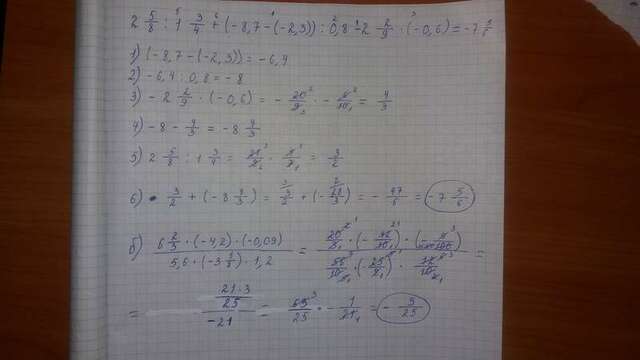 2 5/8 : 1 3/4 + (-8,7-(-2,3)) : 0,8 - 2 2/9 · (-0,6) = -7 5/6
1) (-8,7-(-2,3)) = -6,4
2) -6,4 : 0,8 = -8
3) -2 2/9 · (-0,6) = - 20/9 · - 6/10 = 4/3
4) -8 - 4/3 = -8 4/3
5) 2 5/8 : 1 3/4 = 21/8 · 4/7 = 3/2
6) 3/2 + (-8 4/3) = 3/2 + (- 28/3) = - 47/6 = -7 5/6
б) 6 2/3 · (-4,2) · (-0,09) / 5,6 · (-3 1/8) · 1,2 =
= 21·3/25 / -21 = 63/25 · - 1/21 = - 3/25